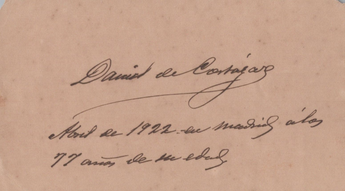 Daniel de Cortázar
Abril de 1922 en Madrid á los
77 años de su edad